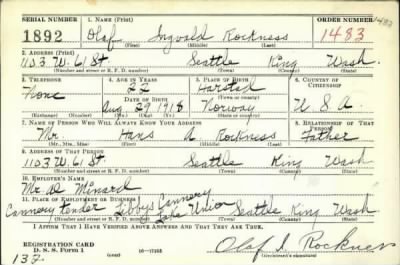 SERIAL NUMBER 1. NAME (Print) ORDER NUMBER 1483
1892 Olaf Ingvald Rockness 1483
(First) (Middle) (Last)
2. ADDRESS (Print)
1153 W. 61 St Seattle King Wash.
(Number and street or R. F. D. number) (Town) (County) (State)
3. TELEPHONE 4. AGE IN YEARS 5. PLACE OF BIRTH 6. COUNTRY OF CITIZENSHIP
None 22 Harstad
DATE OF BIRTH (Town or county)
Aug 29 1918 Norway U.S.A.
(Mo.) (Day) (Yr.) (State or country)
7. NAME OF PERSON WHO WILL ALWAYS KNOW YOUR ADDRESS 8. RELATIONSHIP OF THAT PERSON
Mr. Hans A. Rockness Father
(Mr., Mrs., Miss) (First) (Middle) (Last)
9. ADDRESS OF THAT PERSON
1153 W. 61 St Seattle King Wash
(Number and street or R. F. D. number) (Town) (County) (State)
10. EMPLOYER'S NAME
Mr. Minard
11. PLACE OF EMPLOYMENT OR BUSINESS
Cannery tender Libbys Cannery Lake Union Seattle King Wash
(Number and street or R. F. D. number) (Town) (County) (State)
I AFFIRM THAT I HAVE VERIFIED ABOVE ANSWERS AND THAT THEY ARE TRUE.
REGISTRATION CARD
D. S. S. Form 1 (over) Olaf I. Rockness
(Registrant's signature)
132